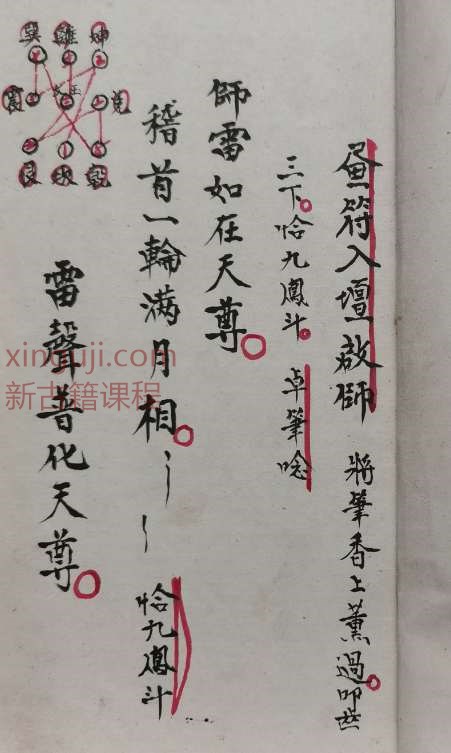 畫符入壇啟師 將筆香上薰過。叩齒
三下。恰九鳳斗。卓筆唸
師雷如在天尊。
稽首一輪滿月相。〻〻 恰九鳳斗
雷聲普化天尊。
巽 離 坤
震 兌
艮 坎 乾
xinguji.com
新古籍课程